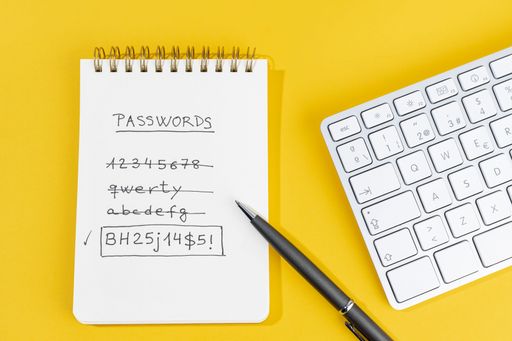 PASSWORDS
12345678
qwerty
abcdefg
✓ BH25j14$5!
esc
@ 2
# 3
Q W E €
A S D
Z X